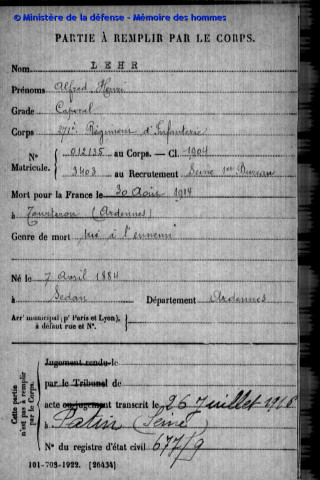 © Ministère de la défense - Mémoire des hommes
PARTIE À REMPLIR PAR LE CORPS.
Nom LEHR
Prénoms Alfred Henri
Grade Caporal
Corps 271e Régiment d'Infanterie
N° Matricule. 012135 au Corps. — Cl. 1904
3403 au Recrutement Seine 1er Bureau
Mort pour la France le 30 Août 1914
à Tourteron (Ardennes)
Genre de mort tué à l'ennemi
Né le 7 Avril 1884
à Sedan Département Ardennes
Arrt municipal (pr Paris et Lyon),
à défaut rue et N°.
Cette partie n'est pas à remplir par le Corps.
Jugement rendu le
par le Tribunal de
acte ou jugement transcrit le 26 Juillet 1916
à Pantin (Seine)
N° du registre d'état civil 677/9
101-708-1922. [26434]